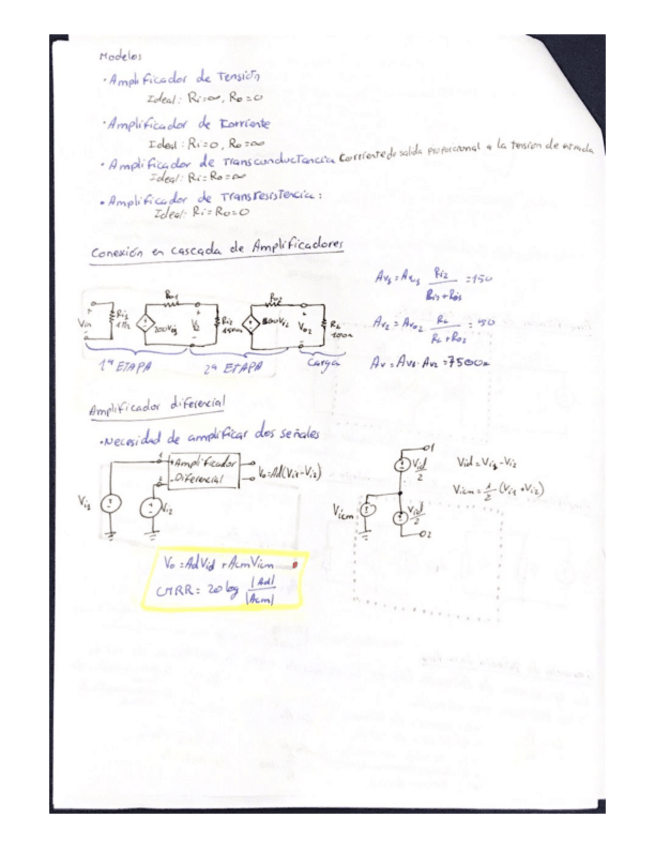 Modelos
· Amplificador de Tensión
Ideal: Ri=∞, Ro=0
· Amplificador de Corriente
Ideal: Ri=0, Ro=∞
· Amplificador de Transconductancia Corriente de salida proporcional a la tension de entrada
Ideal: Ri=Ro=∞
· Amplificador de Transresistencia:
Ideal: Ri=Ro=0
Conexión en cascada de Amplificadores
Ri2
Ri2+Ro1
=150
RL
RL+Ro2
= 50
Ro1
Ro2
Vin
Vo2
RL
1ª ETAPA
2ª ETAPA
Carga
Amplificador diferencial
· Necesidad de amplificar dos señales
1
+Amplificador
-Diferencial
2
Vo=Ad(Vi1-Vi2)
Vi1
Vi2
o1
Vid
2
Vicm
Vid
2
o2
Vid=Vi1-Vi2
Vicm=1/2 (Vi1+Vi2)
Vo=AdVid+AcmVicm
CMRR= 20 log |Ad|/|Acm|